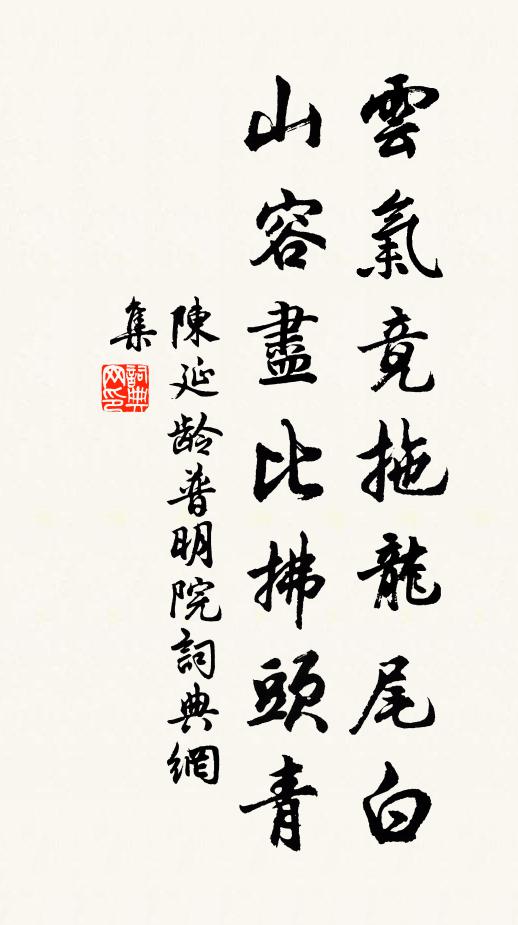 雲氣竟拖龍尾白
山容盡比拂頭青
陳延龄普明院詞典網
集
詞典網印